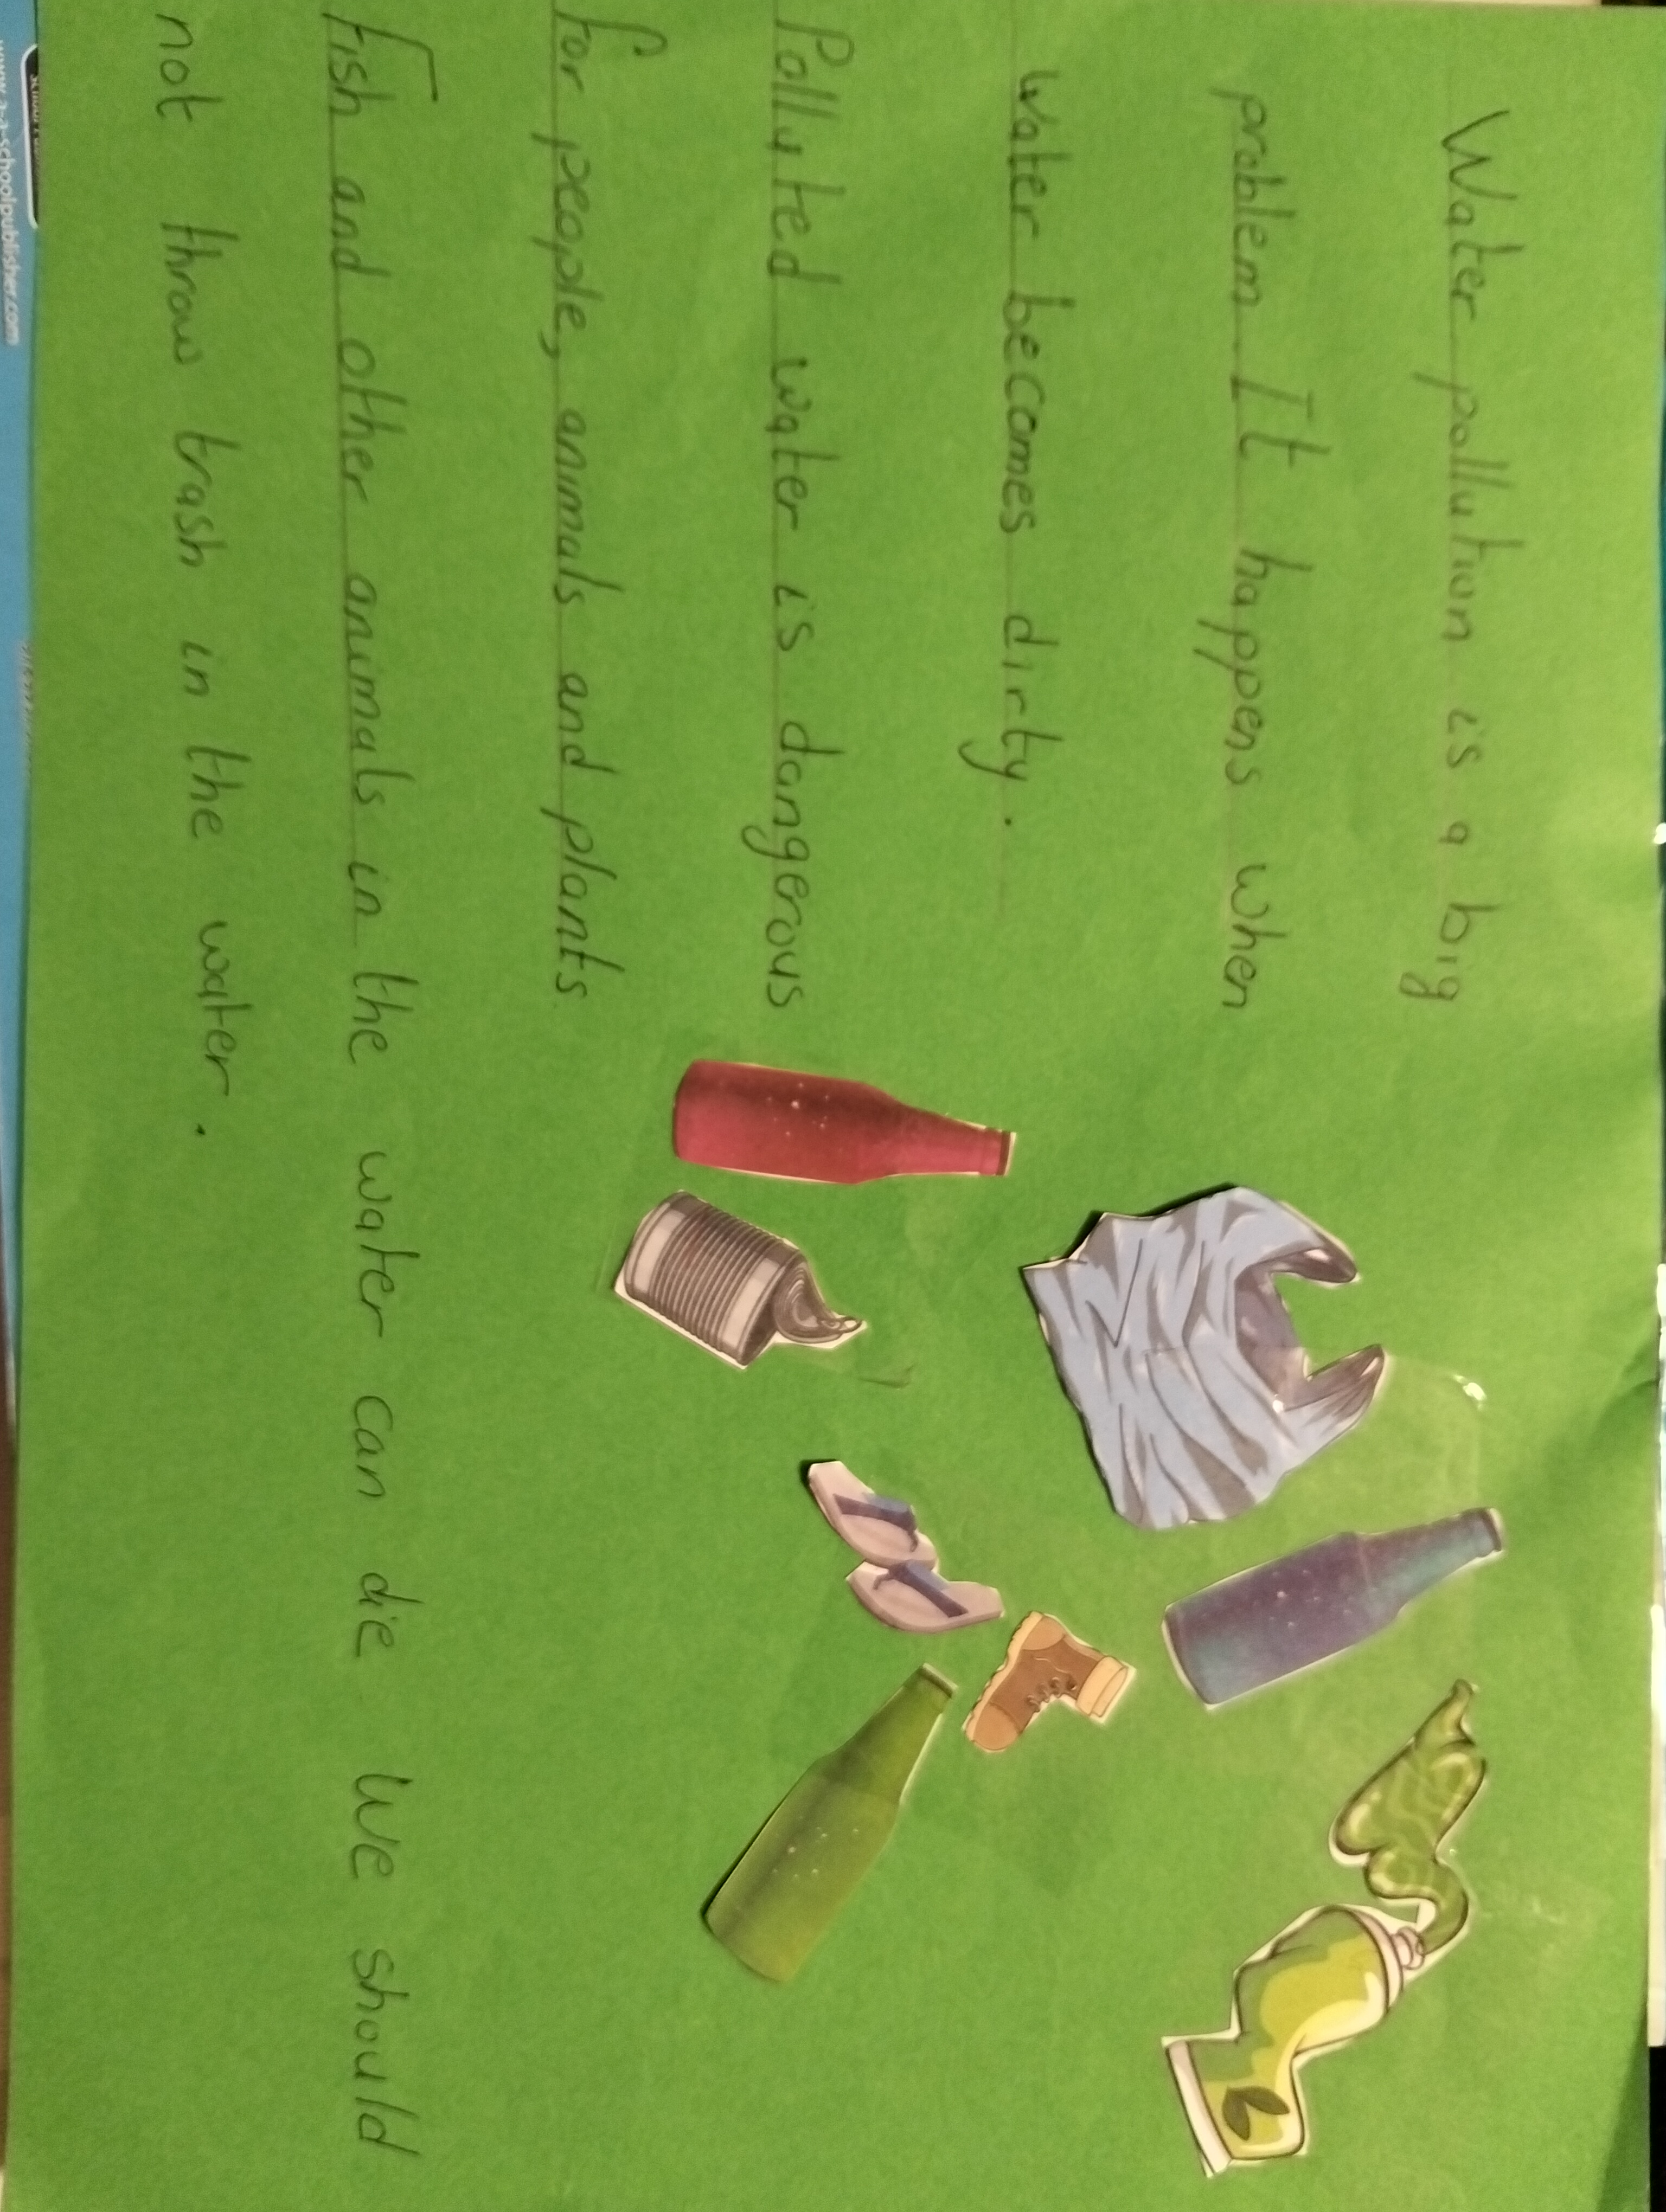 Water pollution is a big
problem. It happens when
water becomes dirty.
Polluted water is dangerous
for people, animals and plants
Fish and other animals in the water can die. We should
not throw trash in the water.
www.a-a-schoolpublisher.com